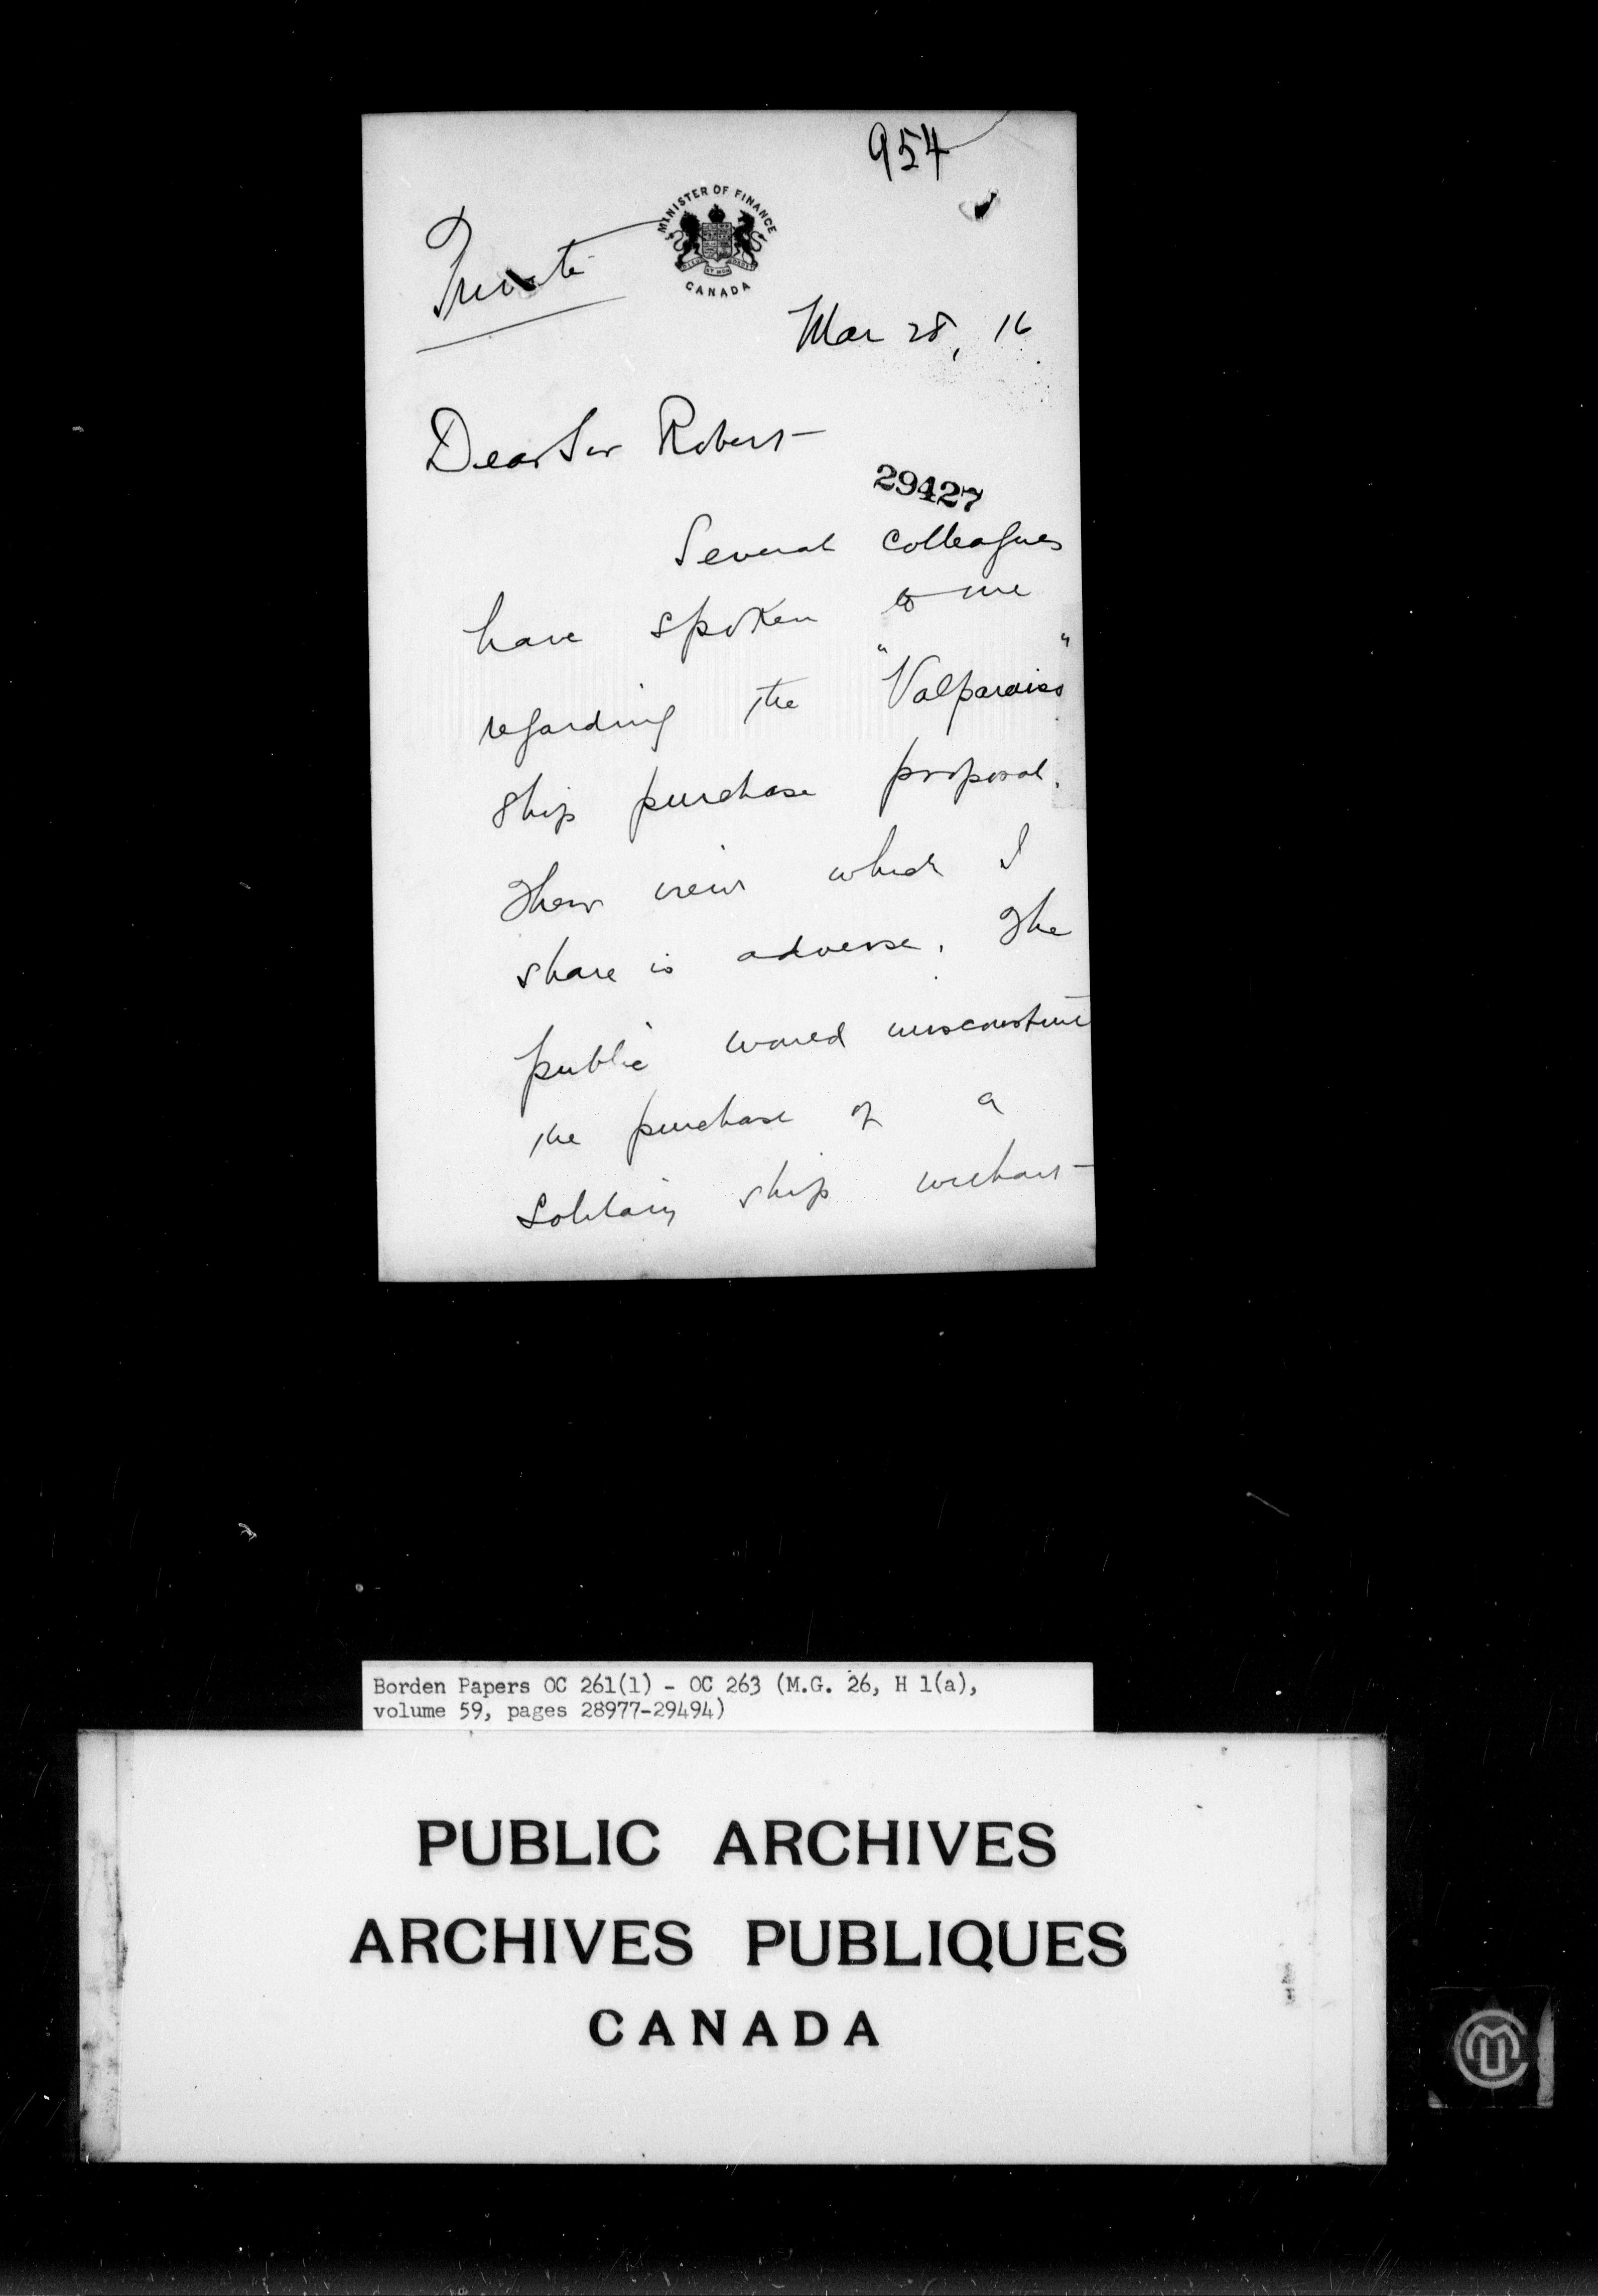 954
MINISTER OF FINANCE
CANADA
Private
Mar 28, 16
Dear Sir Robert
29427
Several colleagues
have spoken to me
regarding the "Valparaiso"
ship purchase proposal.
Their view which I
share is adverse. The
public would misconstrue
the purchase of a
solitary ship without
Borden Papers OC 261(1) - OC 263 (M.G. 26, H 1(a),
volume 59, pages 28977-29494)
PUBLIC ARCHIVES
ARCHIVES PUBLIQUES
CANADA